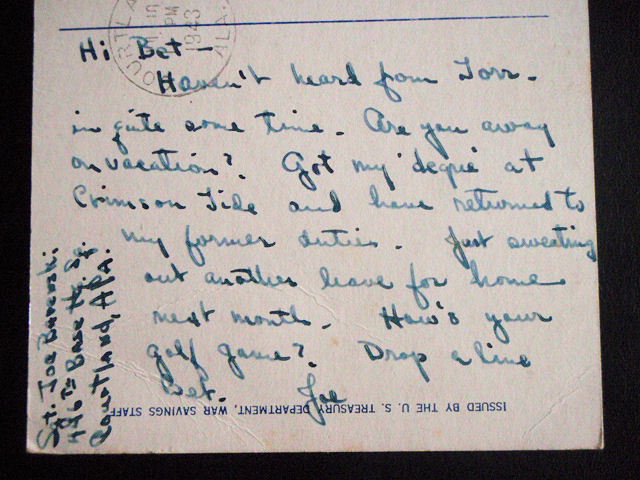 COURTLAND ALA.
PM
1943
Hi Bet —
Haven't heard from Torr.
in quite some time. Are you away
on vacation? Got my 'degre' at
Crimson Tide and have returned to
my former duties. Just sweating
out another leave for home
next month. How's your
golf game? Drop a line
Bet. Joe
Sgt. Joe
446th Base Hq. Sq.
Courtland, ALA.
ISSUED BY THE U. S. TREASURY DEPARTMENT, WAR SAVINGS STAFF